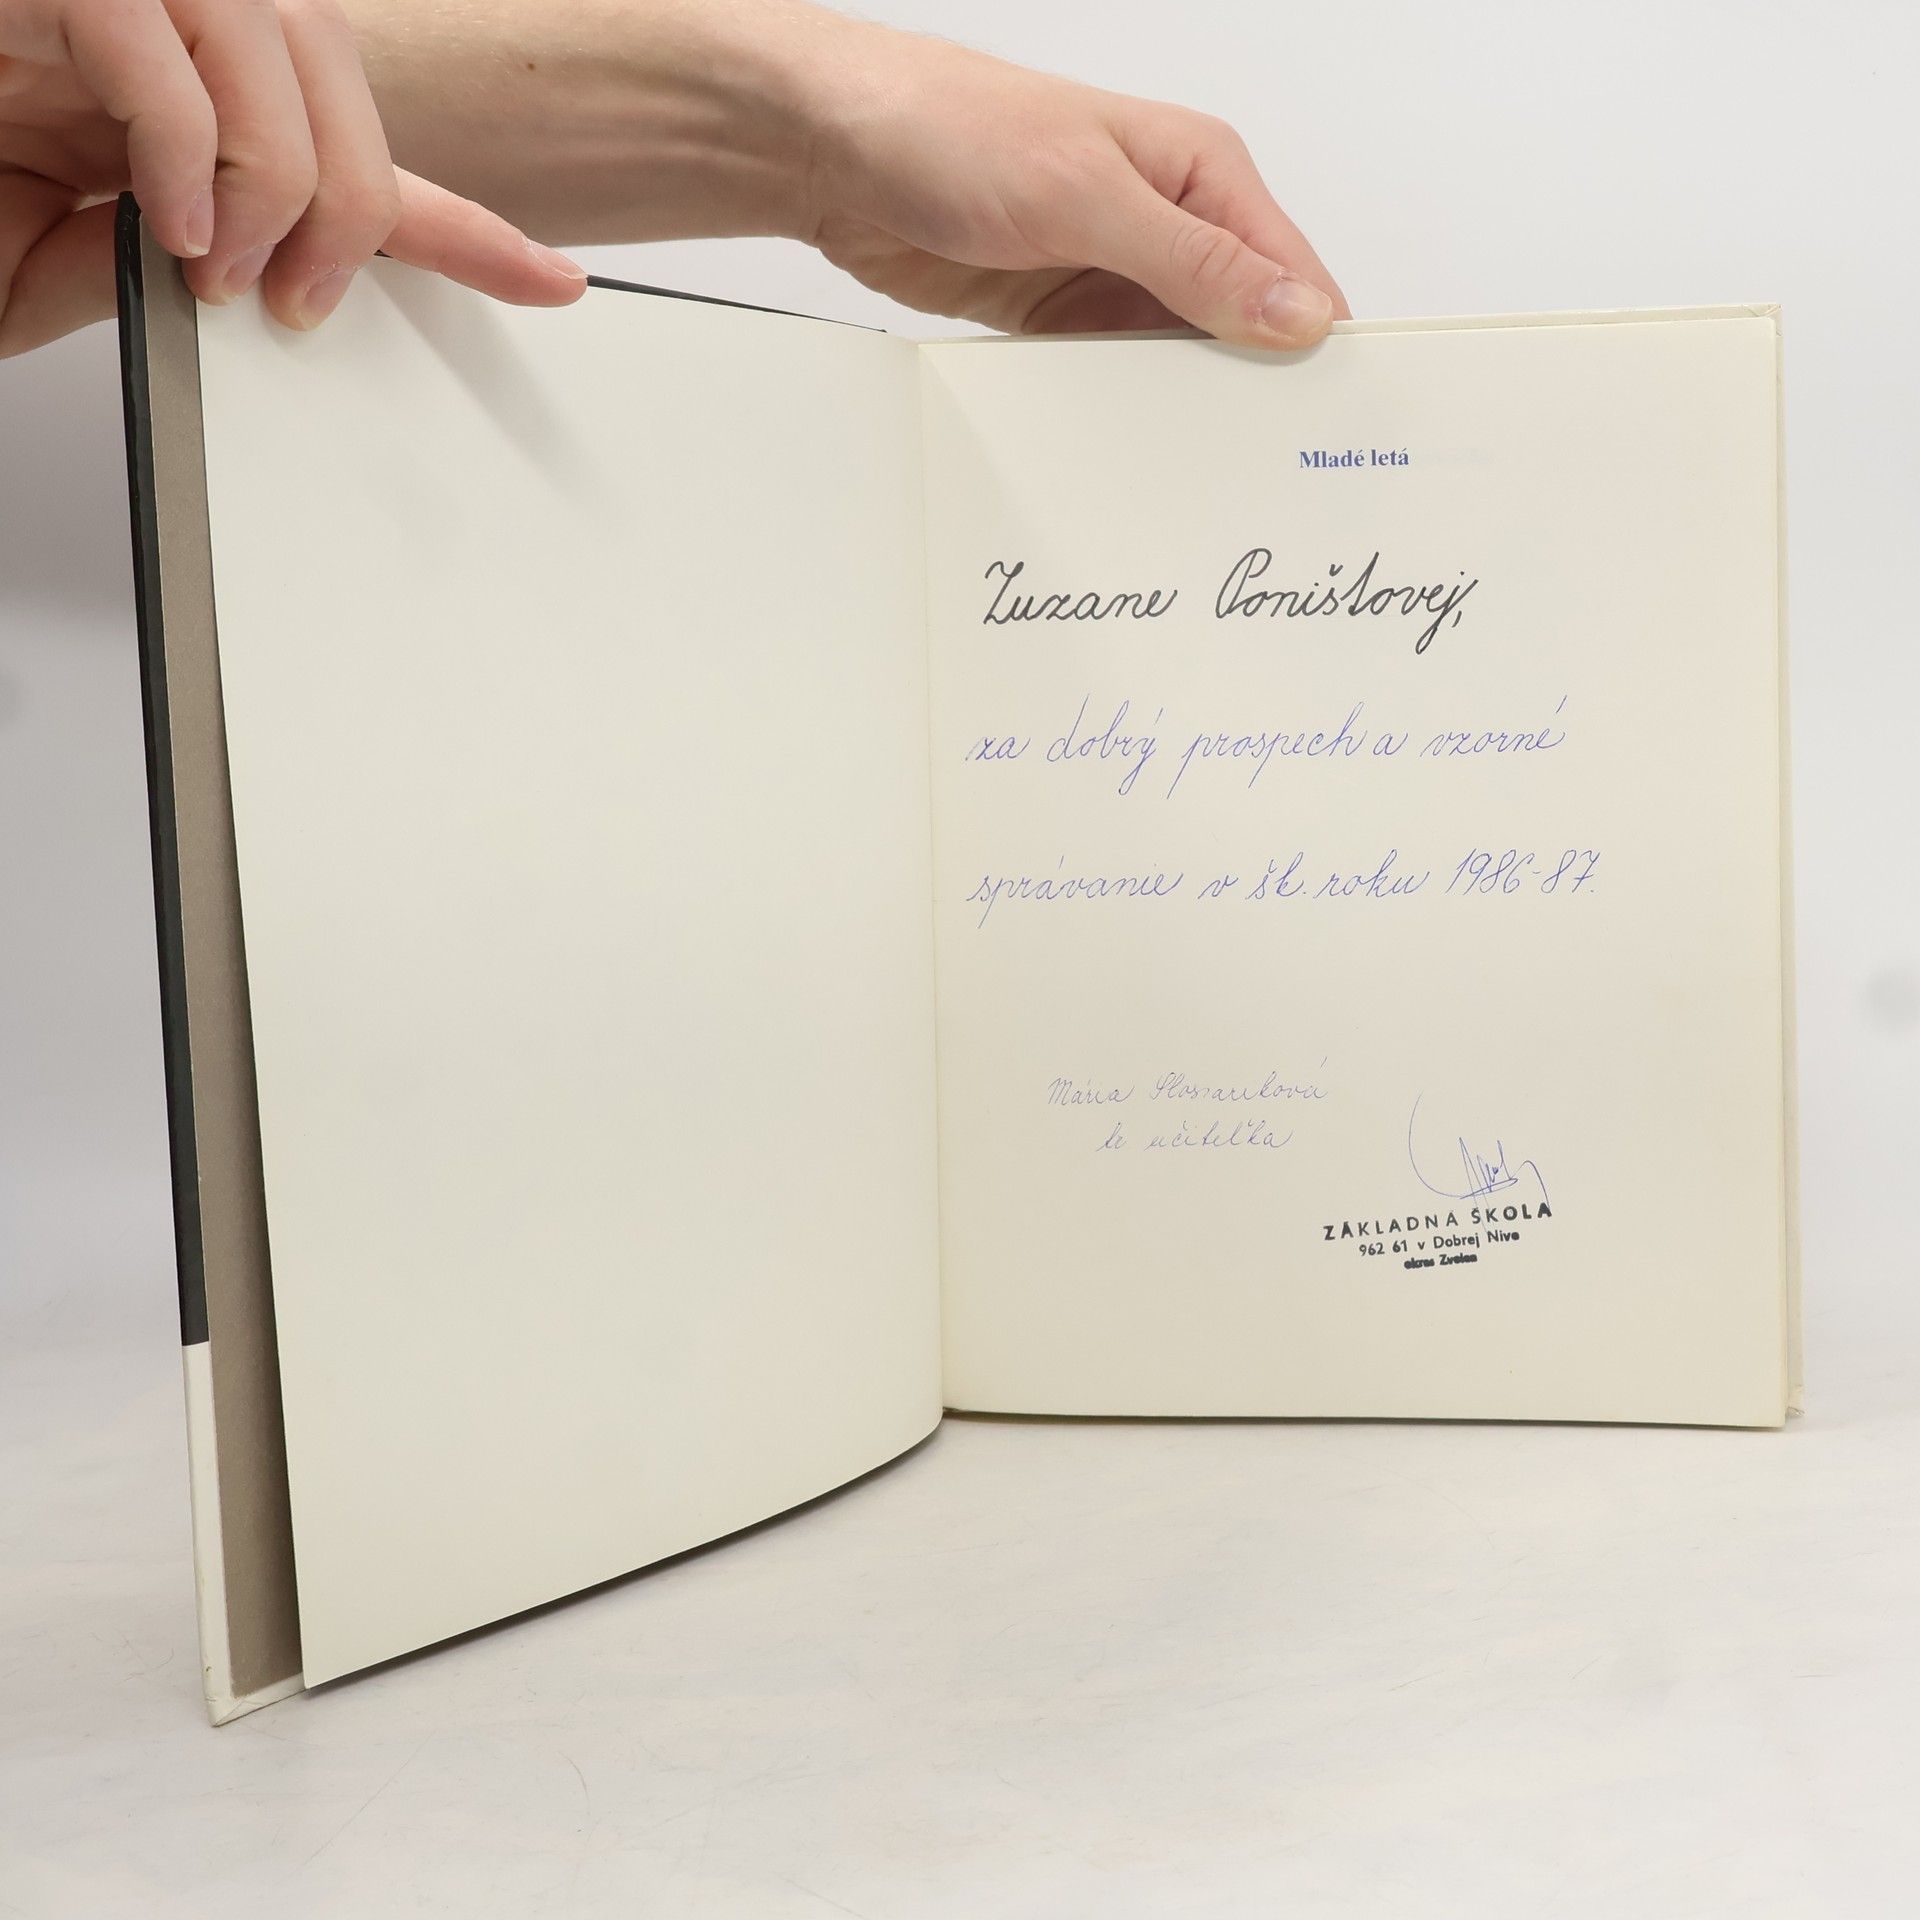 Mladé letá
Zuzane Poništovej,
za dobrý prospech a vzorné
správanie v šk. roku 1986-87.
Mária
tr učiteľka
ZÁKLADNA ŠKOLA
962 61 v Dobrej Nive
okres Zvolen